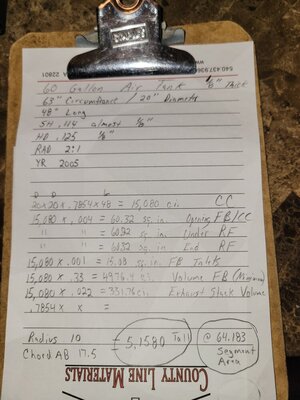 540.437.936
A 22801
60 Gallon Air Tank 1/8" Thick
63" Circumfrance / 20" Diameter
48" Long
SH .114 almost 1/8"
HD .125 1/8"
RAD 2:1
YR 2005
D D L
20x20x.7854x48 = 15,080 c.i. CC
15,080 x .004 = 60.32 sq. in. Opening FB/CC
" " = 60.32 sq. in. Under RF
" " = 60.32 sq. in End RF
15,080 x .001 = 15.08 sq. in FB Intake
15,080 x .33 = 4976.4 c.i. Volume FB (Minimum)
15,080 x .022 = 331.76 c.i. Exhaust Stack Volume
.7854 x x =
Radius 10 5.1580 Tall @ 64.183
Chord AB 17.5 Segment
Area
COUNTY LINE MATERIALS